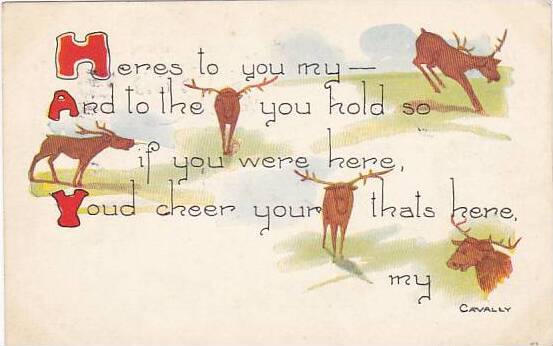 Heres to you my —
And to the you hold so
if you were here,
Youd cheer your thats here,
my
CAVALLY